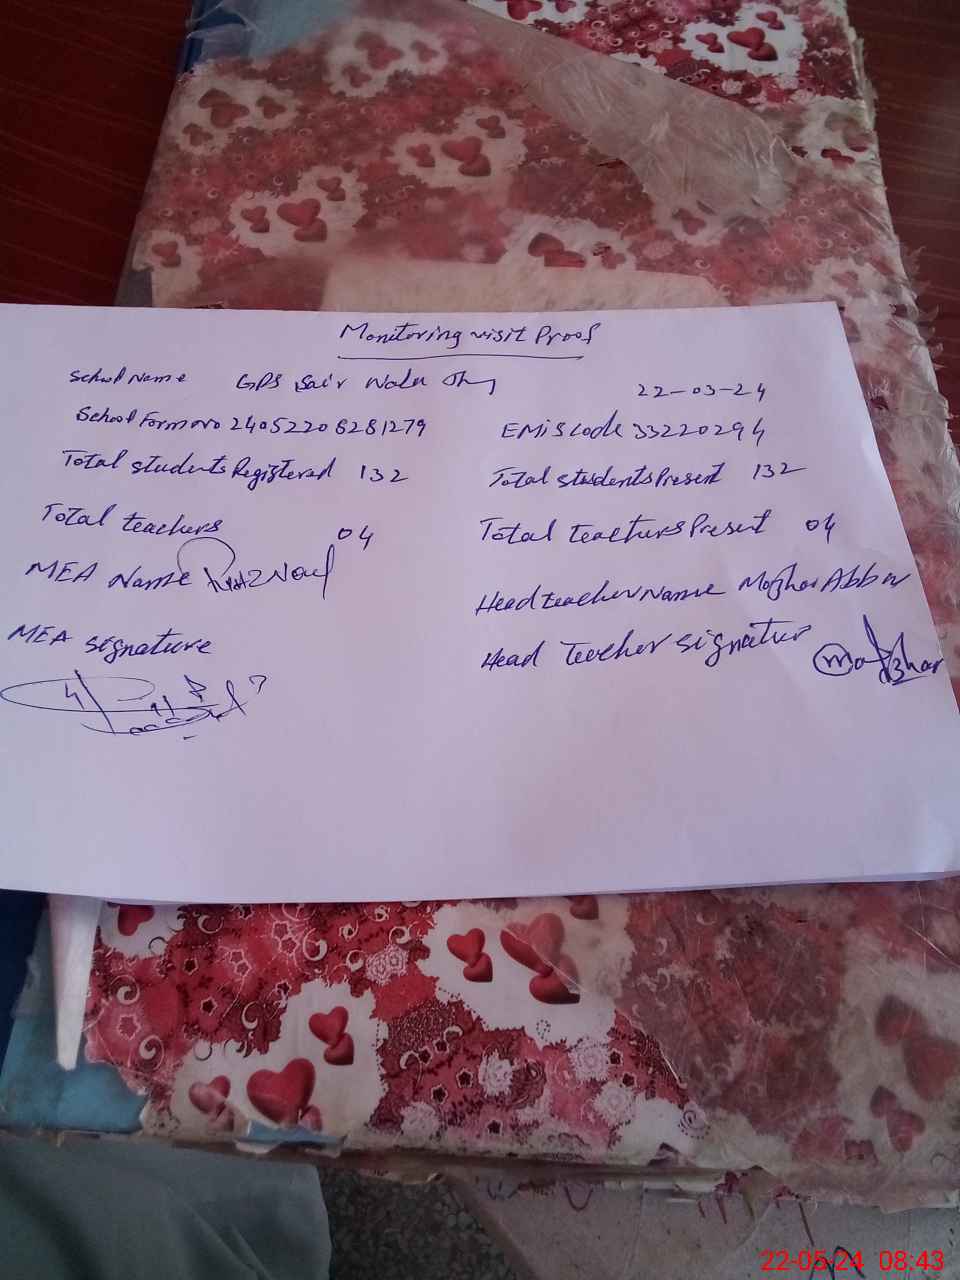 Monitoring visit Proof
School Name GPS
22-03-24
School Form no 24052206281279
EMIS Code 33220294
Total students Registered 132
Total students Present 132
Total teachers 04
Total Teachers Present 04
MEA Name
Head teacher Name Mazhar Abbas
MEA signature
Head Teacher signatur
Mazhar
22-05-24 08:43